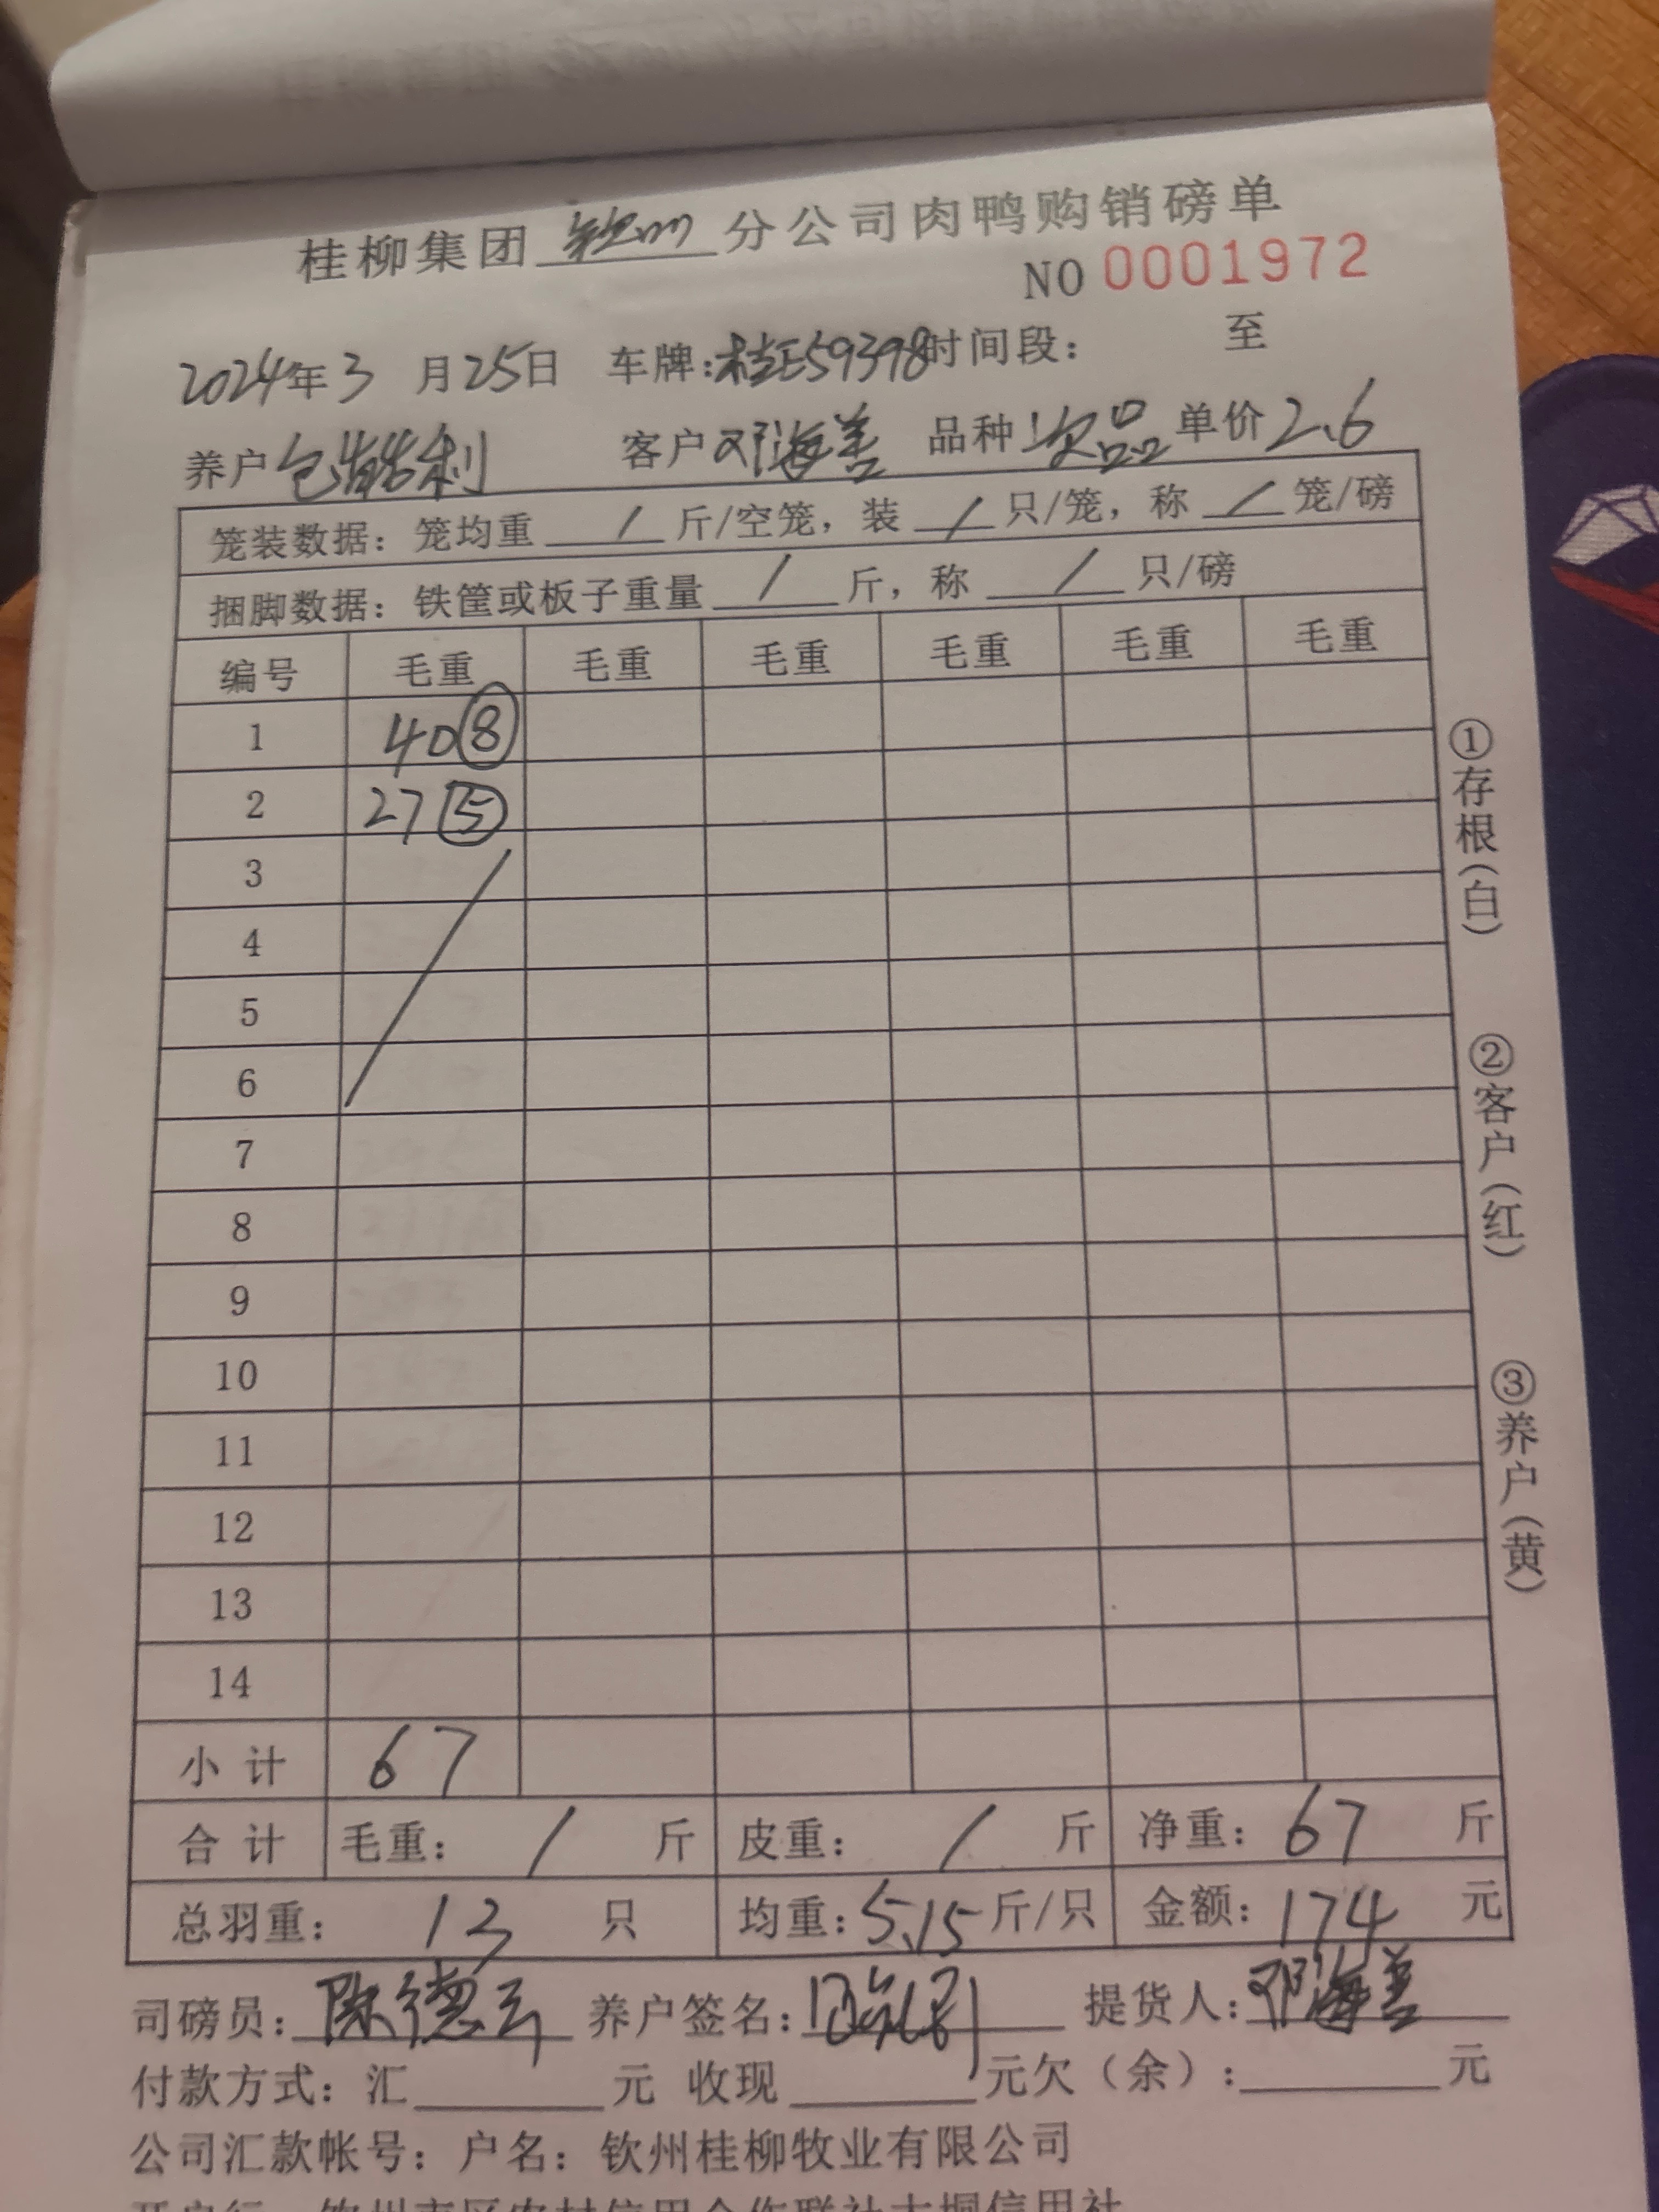 桂柳集团 钦州 分公司肉鸭购销磅单
NO 0001972
2024年3月25日 车牌:桂E59398 时间段: 至
养户 包能利 客户 邓海善 品种 次品 单价 2.6
笼装数据: 笼均重 / 斤/空笼, 装 / 只/笼, 称 / 笼/磅
捆脚数据: 铁筐或板子重量 / 斤, 称 / 只/磅
编号 毛重 毛重 毛重 毛重 毛重 毛重
1 40⑧
2 27⑤
3
4
5
6
7
8
9
10
11
12
13
14
小计 67
合计 毛重: / 斤 皮重: / 斤 净重: 67 斤
总羽重: 13 只 均重: 5.15 斤/只 金额: 174 元
司磅员: 陈德云 养户签名: 提货人: 邓海善
付款方式: 汇 元 收现 元欠(余): 元
公司汇款帐号: 户名: 钦州桂柳牧业有限公司
①存根(白)
②客户(红)
③养户(黄)